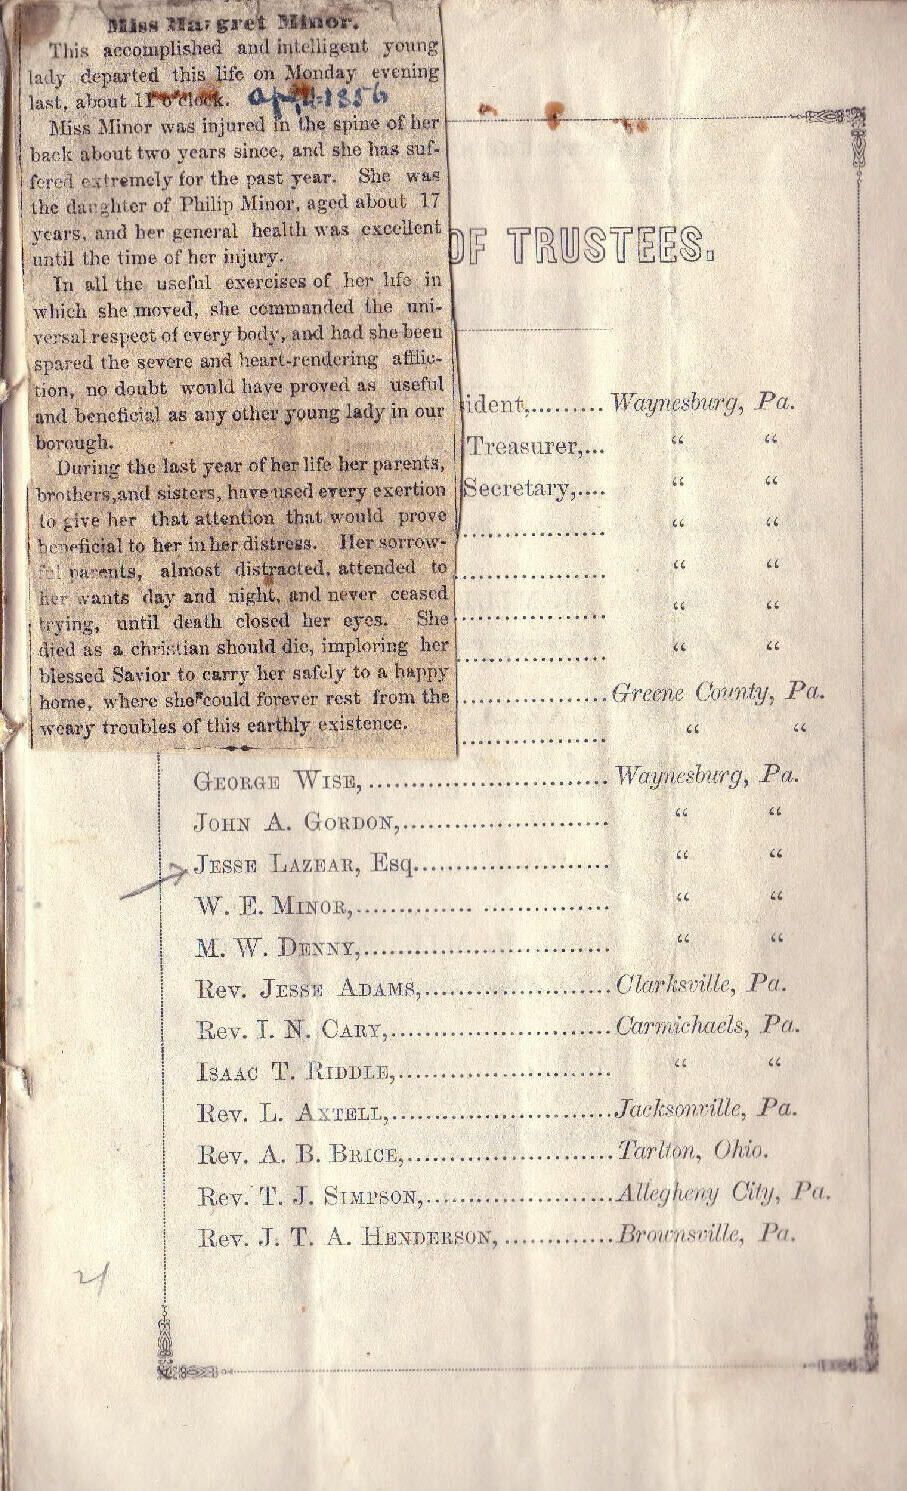 Miss Margret Minor.
This accomplished and intelligent young
lady departed this life on Monday evening
last, about 11 o'clock. April 1856
Miss Minor was injured in the spine of her
back about two years since, and she has suf-
fered extremely for the past year. She was
the daughter of Philip Minor, aged about 17
years, and her general health was excellent
until the time of her injury.
In all the useful exercises of her life in
which she moved, she commanded the uni-
versal respect of every body, and had she been
spared the severe and heart-rendering afflic-
tion, no doubt would have proved as useful
and beneficial as any other young lady in our
borough.
During the last year of her life her parents,
brothers, and sisters, have used every exertion
to give her that attention that would prove
beneficial to her in her distress. Her sorrow-
ful parents, almost distracted, attended to
her wants day and night, and never ceased
trying, until death closed her eyes. She
died as a christian should die, imploring her
blessed Savior to carry her safely to a happy
home, where she could forever rest from the
weary troubles of this earthly existence.
OF TRUSTEES.
ident,......... Waynesburg, Pa.
Treasurer,... “ “
Secretary,.... “ “
................ “ “
................ “ “
................ “ “
................ “ “
................ Greene County, Pa.
................ “ “
GEORGE WISE,.......................... Waynesburg, Pa.
JOHN A. GORDON,........................ “ “
JESSE LAZEAR, Esq....................... “ “
W. E. MINOR,............. .............. “ “
M. W. DENNY,............................ “ “
Rev. JESSE ADAMS,.....................Clarksville, Pa.
Rev. I. N. CARY,.........................Carmichaels, Pa.
ISAAC T. RIDDLE,........................ “ “
Rev. L. AXTELL,.........................Jacksonville, Pa.
Rev. A. B. BRICE,.......................Tarlton, Ohio.
Rev. T. J. SIMPSON,.....................Allegheny City, Pa.
Rev. J. T. A. HENDERSON,.............Brownsville, Pa.